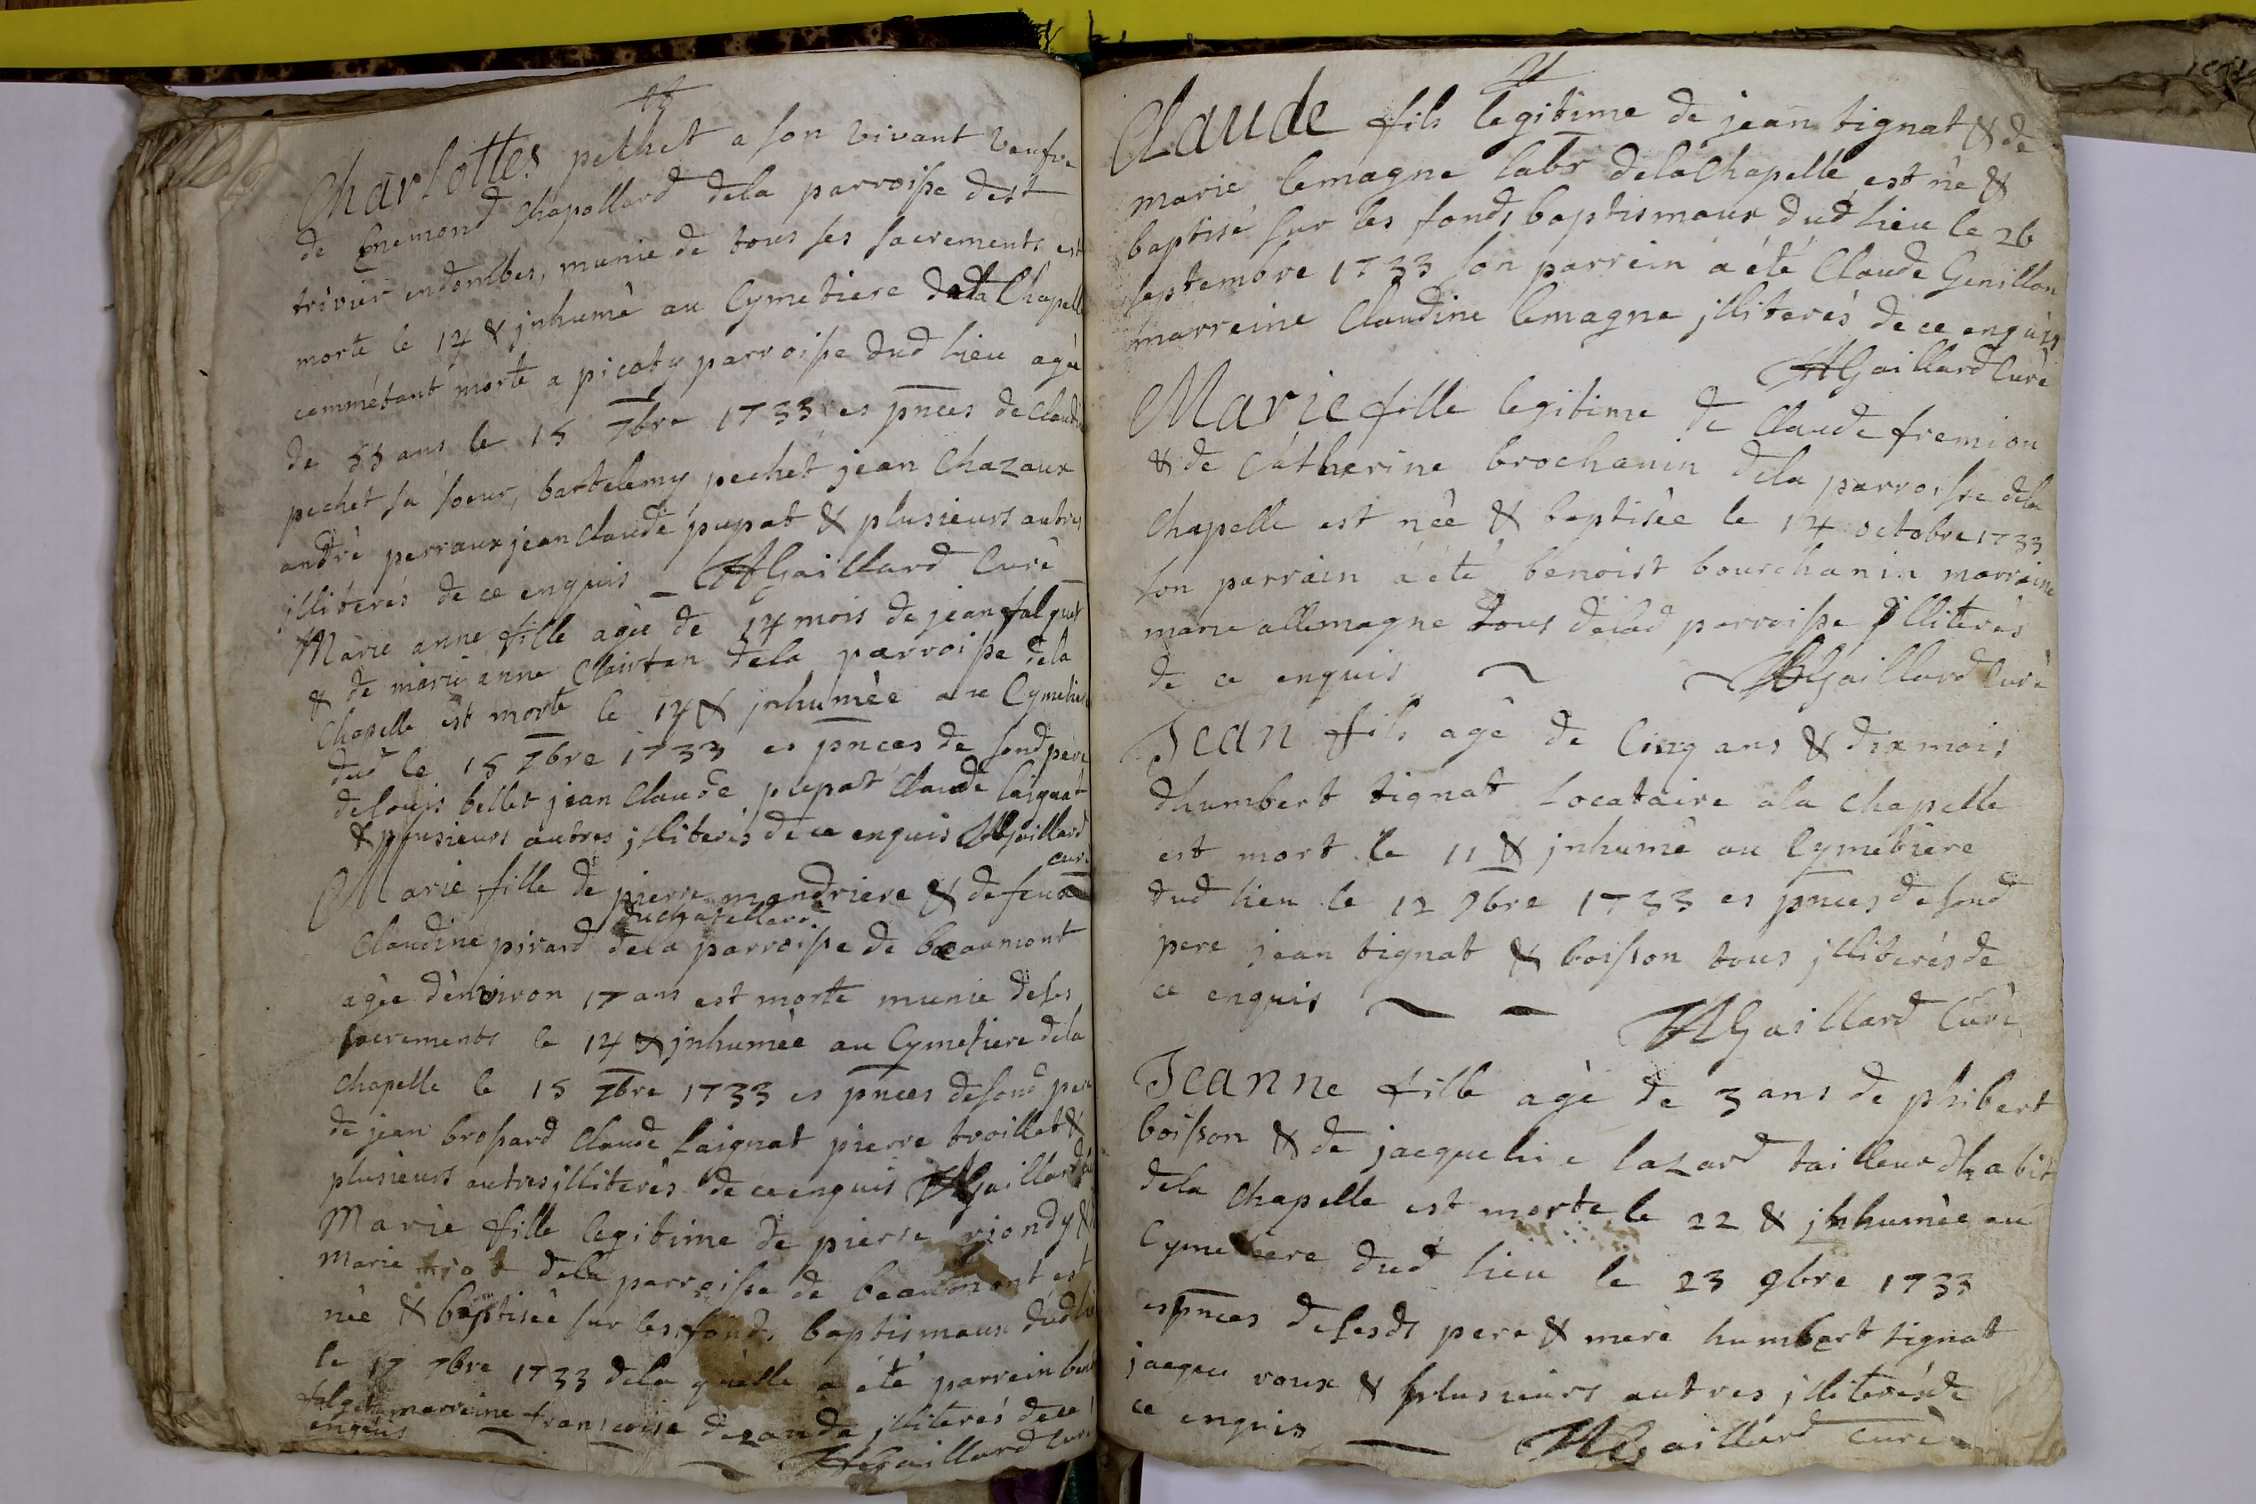 Charlottes pechet a son vivant veufve
de Enemond Chapollard dela parroisse de st
trivier endombes, munie de tous ses sacrements est
morte le 14 & jnhumé au Cymetiere dela Chapelle
comme étant morte a picaty parroisse dud lieu agée
de 55 ans le 15 7bre 1733 es pnces de Claudine
pechet sa soeur, bartelemy pechet jean Chazaux
andré perraux jean claude pupat & plusieurs autres
jlliterés de ce enquis AGaillard Curé
Marie anne fille agée de 14 mois de jean falquet
& de marie anne Clairtan dela parroisse dela
Chapelle est morte le 14 & jnhumée au Cymetiere
dud le 15 7bre 1733 es pnces de sond pere
de louis bellet jean Claude pupat Claude laignat
& plusieurs autres jlliterés de ce enquis AGaillard
curé
Marie fille de pierre mandriere & de feue
duchatellard
Claudine pirard dela parroisse de beaumont
agée d'environ 17 ans est morte munie de ses
sacrements le 14 & jnhumée au Cymetiere dela
Chapelle le 15 7bre 1733 es pnces de sond pere
de jean brossard Claude laignat pierre troillet &
plusieurs autres jlliterés de ce enquis AGaillard
Marie fille legitime de pierre riondy &
marie dela parroisse de beaumont est
née & baptisée sur les fonds baptismaux dud lieu
le 17 7bre 1733 dela quelle a été parrein
marreine francoise dezande jlliterés de ce
enquis AGaillard Curé
Claude fils legitime de jean tignat & de
marie lemagne labr dela Chapelle est né &
baptisé sur les fonds baptismaux dud lieu le 26
septembre 1733 son parrein a été Claude Genillon
marreine Claudine lemagne jlliterés de ce enquis
AGaillard Curé
Marie fille legitime de Claude fremion
& de Catherine brochanin dela parroisse dela
Chapelle est née & baptisée le 14 octobre 1733
son parrain a été benoist bourchanin marraine
marie allemagne tous delad parroisse jlliterés
de ce enquis AGaillard Curé
Jean fils agé de Cinq ans & dix mois
dhumbert tignat locataire ala chapelle
est mort le 11 & jnhumé au Cymetiere
dud lieu le 12 9bre 1733 es pnces de sond
pere jean tignat & boisson tous jlliterés de
ce enquis
AGaillard Curé
Jeanne fille agé de 3 ans de phibert
boisson & de jacqueline lazard tailleur dhabit
dela Chapelle est morte le 22 & jnhumée au
Cymetiere dud lieu le 23 9bre 1733
es pnces de sesds pere & mere humbert tignat
jacque roux & plusieurs autres jlliterés de
ce enquis AGaillard Curé